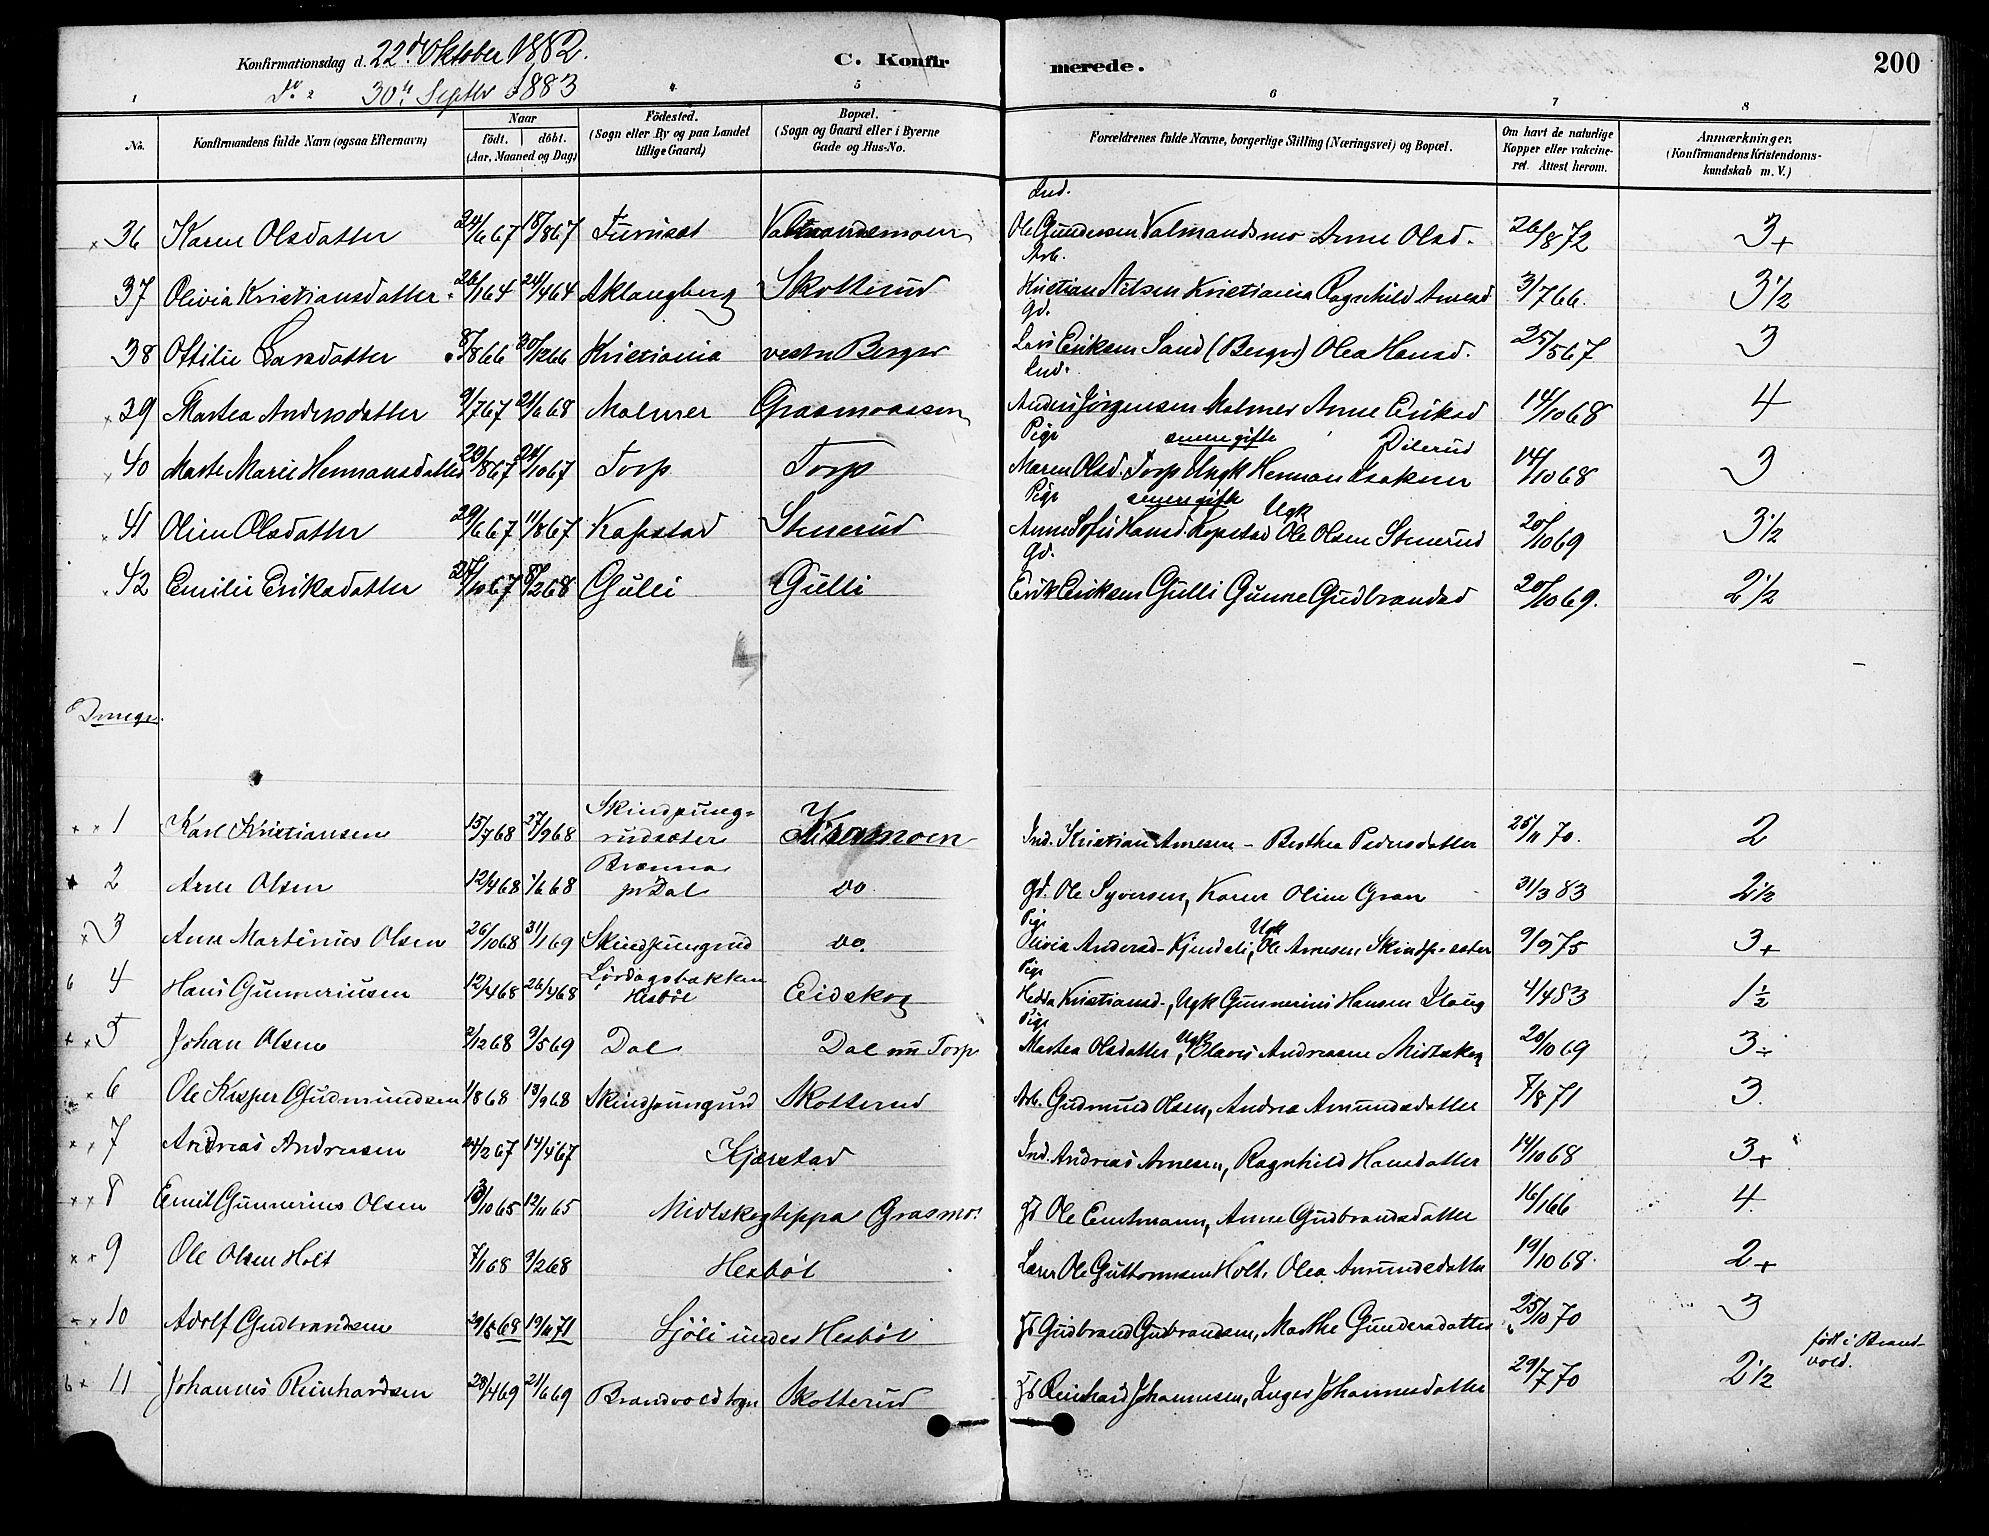 Konfirmationsdag d. 22d Oktober 1882. C. Konfirmerede. 200
do " 30te Septbr 1883
1 4 5 6 7 8
No. Konfirmandens fulde Navn (ogsaa Efternavn) Naar födt. döbt. (Aar, Maaned og Dag) Födested. (Sogn eller By og paa Landet tillige Gaard) Bopæl. (Sogn og Gaard eller i Byerne Gade og Hus-No. Forældrenes fulde Navne, borgerlige Stilling (Næringsvei) og Bopæl. Om havt de naturlige Kopper eller vakcineret. Attest herom. Anmærkninger. (Konfirmandens Kristendomskundskab m. V.)
36 Karen Olsdatter 24/6 67 18/8 67 Furuset Valmandsmoen Ind. Ole Gundersen Valmandsmo Anne Olsd. 26/8 72 3+
37 Olivia Kristiansdatter 26/1 64 24/4 64 Aklangberg Skotterud Arb. Kristian Nilsen Kristiania Ragnhild Arnesd 3/7 66. 3 1/2
38 Ottilie Larsdatter 8/8 66 30/12 66 Kristiania vestre Berger Gd. Lars Eriksen Sand (Berger) Olea Hansd. 25/5 67 3
39 Martea Andersdatter 9/7 67 21/6 68 Malmer Grasmoasen Ind. Anders Jörgensen Malmer Anne Eriksd 14/10 68 4
40 Marte Marie Hermansdatter 20/8 67 20/10 67 Torp Torp Pige senere gifte Maren Olsd. Torp Ungk Herman Isaksen 14/10 68 3
41 Oline Olsdatter 29/6 67 11/8 67 Kopstad Stenerud Pige senere gifte Anne Sofie Hansd. Kopstad Ugk Ole Olsen Stenerud 20/10 69 3 1/2
42 Emilie Eriksdatter 27/10 67 8/2 68 Gulli Gulli Gd. Erik Eriksen Gulli Gunne Gudbrandsd 20/10 69. 2 1/2
Drenge.
1 Karl Kristiansen 15/7 68 27/9 68 Skindpungrudsæter Kirsmoen Ind. Kristian Arnesen - Berthea Pedersdatter 25/11 70. 2
2 Arne Olsen 12/4 68 1/6 68 Brænna pr Dal do Gd. Ole Syversen, Karen Oline Gran 31/3 83 2 1/2
3 Arne Martinius Olsen 26/10 68 31/1 69 Skindpungrud do. Pige Olivia Andersd - Kjendali, Ugk Ole Arnesen Skindp.sæter 9/9 75 3+
4 Hans Gunneriusen 12/4 68 26/4 68 Lördagsbakken Hesböl Eidskog Pige Hedda Kristiansd., Ugk Gunnerius Hansen 4/4 83 1 1/2
5 Johan Olsen 2/12 68 9/5 69 Dal Dal nu Torp Pige Martea Olsdatter, Ugk Olaves Andreasen Midtskog 20/10 69 3÷
6 Ole Kasper Gudmundsen 1/8 68 13/9 68 Skindpungrud Skotterud Arb. Gudmund Olsen, Andrea Amundsdatter 7/8 71 3.
7 Andreas Andreasen 24/2 67 14/4 67 Kjærstad Ind. Andreas Arnesen, Ragnhild Hansdatter 14/10 68 3+
8 Emil Gunnerius Olsen 13/10 65 12/11 65 Midtskogtippa Grasmo. Gd Ole Embmann, Anne Gudbrandsdatter 16/1 66 4.
9 Ole Olsen Holt 7/1 68 9/2 68 Hesböl Lærer Ole Guttormsen Holt, Olea Amundsdatter 19/10 68. 2+
10 Adolf Gudbrandsen 29/5 68 19/11 71 Sjöli under Hesböl Gd Gudbrand Gudbrandsen, Marthe Gundersdatter 25/10 70 3
11 Johannes Reinhardsen 28/4 69 21/6 69 Brandvold sogn Skotterud Gd Reinhard Johannesen, Inger Johannesdatter 29/7 70 2 1/2 födt i Brandvold.